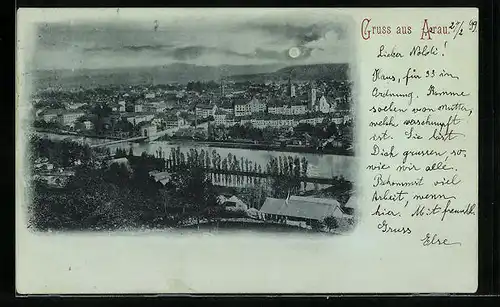 Gruss aus Aarau. 27/2 99.
Lieber Noldi!
Haus, für 33 in
Ordnung. Komme
soeben von Mutter,
welche
ist. Sie lässt
Dich grüssen, so-
wie wir alle.
Bekommst viel
Arbeit, wenn
hier. Mit freundl.
Gruss
Else